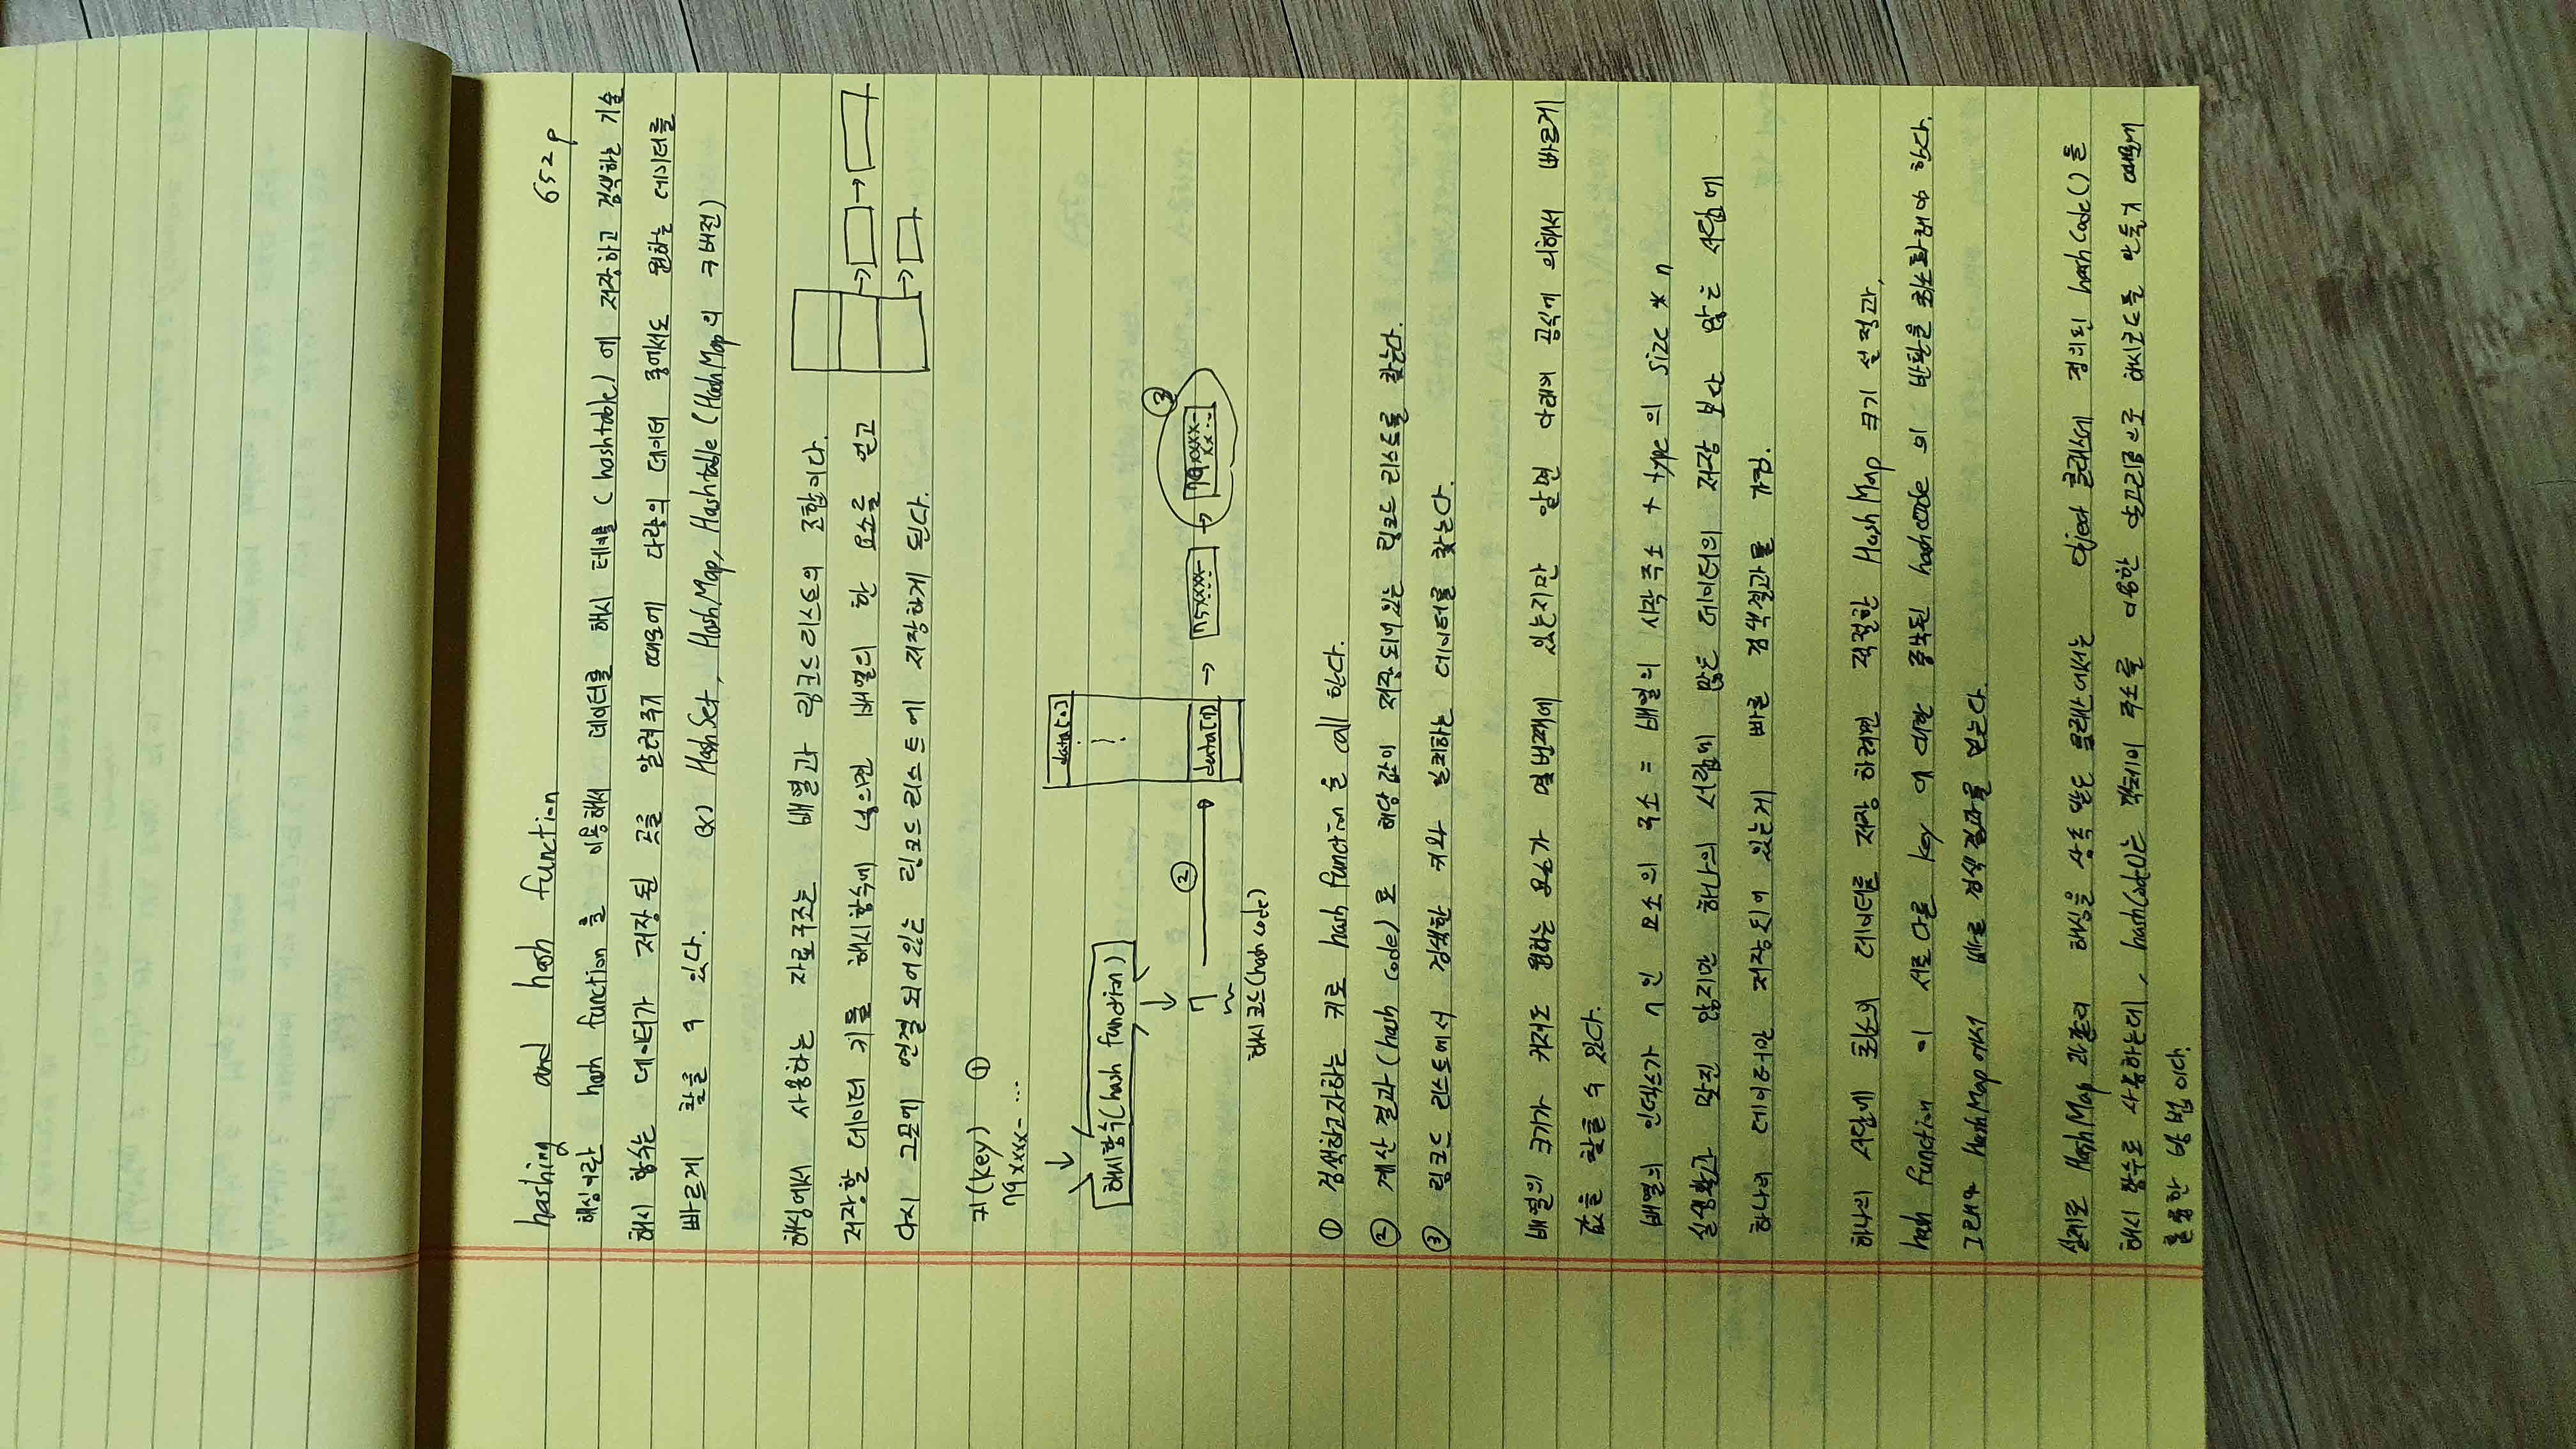 hashing and hash function 652p
해싱이란 hash function을 이용해서 데이터를 해시 테이블(hashtable)에 저장하고 검색하는 기술
해시 함수는 데이터가 저장된 곳을 알려주기 때문에 다량의 데이터 중에서도 원하는 데이터를
빠르게 찾을 수 있다. ex) HashSet, HashMap, Hashtable (HashMap의 구버전)
해싱에서 사용하는 자료구조는 배열과 링크드리스트의 조합이다.
저장할 데이터 키를 해시함수에 넣으면 배열의 한 요소를 얻고
다시 그곳에 연결되어있는 링크드 리스트에 저장하게 된다.
키(key) ①
79xxxx- ...
해시함수(hash function)
data[0]
7
②
data[7]
75xxxx-
79xxxx-
③
해시코드(hash code)
① 검색하고자하는 키로 hash function을 call 한다.
② 계산 결과(hash code)로 해당 값이 저장되어 있는 링크드 리스트를 찾는다.
③ 링크드 리스트에서 검색한 키와 일치하는 데이터를 찾는다.
배열의 크기가 커져도 원하는 요소가 몇번째에 있는지만 알면 아래의 공식에 의해서 빠르게
값을 찾을 수 있다.
배열의 인덱스가 n인 요소의 주소 = 배열의 시작주소 + type의 size * n
실생활과 맞진 않지만 하나의 서랍에 많은 데이터의 저장 보단 많은 서랍에
하나의 데이터만 저장되어 있는게 빠른 검색결과를 가짐.
하나의 서랍에 최소의 데이터를 저장 하려면 적절한 HashMap 크기 설정과,
hash function 이 서로 다른 key 에 대한 중복된 hashcode 의 반환을 최소화해야 한다.
그래야 HashMap에서 빠른 검색결과를 얻는다.
실제로 HashMap 과같이 해싱을 상속 받은 클래스에서는 Object 클래스에 정의된 hashCode()를
해시 함수로 사용하는데, hashCode()는 객체의 주소를 이용한 알고리즘으로 해시코드를 만들기 때문에
훌륭한 방법이다.